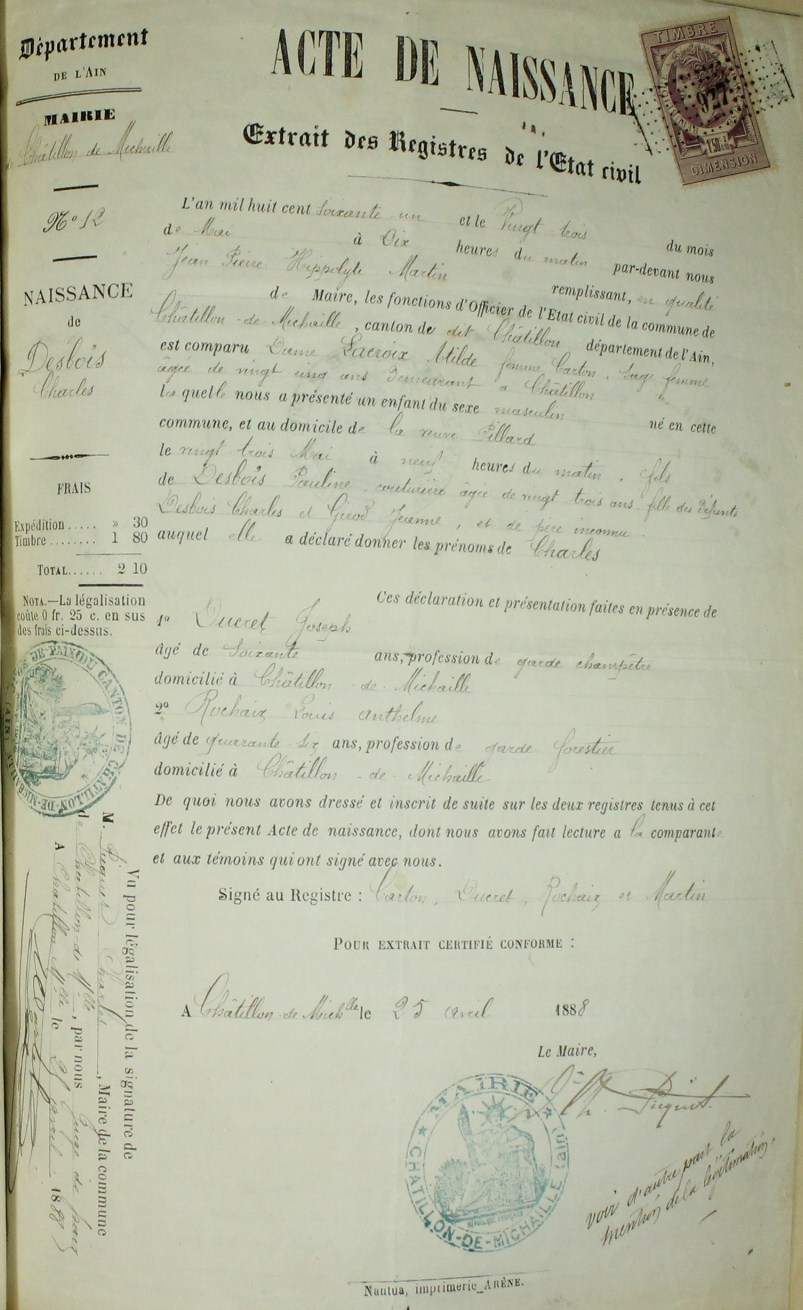 Département
DE L'AIN
MAIRIE
Châtillon de Michaille
N° 12
NAISSANCE
de
Desbois
Charles
FRAIS
Expédition ..... » 30
Timbre ........ 1 80
TOTAL...... 2 10
NOTA.—La légalisation
coûte 0 fr. 25 c. en sus
des frais ci-dessus.
ACTE DE NAISSANCE
Extrait des Registres de l'Etat civil
TIMBRE
927
DIMENSION
L'an mil huit cent soixante un et le Vingt trois du mois
de Mai à Dix heures du matin par-devant nous
Jean Pierre Hippolyte Martin remplissant, en qualité
de Maire, les fonctions d'Officier de l'Etat civil de la commune de
Châtillon de Michaille, canton de dit Châtillon département de l'Ain,
est comparu Dame Lacroix Milde femme Carton, sage femme
âgée de vingt cinq ans demeurant à Châtillon
laquelle nous a présenté un enfant du sexe masculin né en cette
commune, et au domicile de la veuve Pillard
le vingt trois Mai à neuf heures du matin, fils
de Desbois Pauline couturière âgée de vingt trois ans fille des défunts
Desbois Charles et Girod Jeanne, et de père inconnu
auquel elle a déclaré donner les prénoms de Charles
Ces déclaration et présentation faites en présence de
1° Ducret Joseph
âgé de Soixante ans, profession de garde champêtre
domicilié à Châtillon de Michaille
2° Rochaix Louis Anthelme
âgé de quarante six ans, profession de garde forestier
domicilié à Châtillon de Michaille
De quoi nous avons dressé et inscrit de suite sur les deux registres tenus à cet
effet le présent Acte de naissance, dont nous avons fait lecture a la comparante
et aux témoins qui ont signé avec nous.
Signé au Registre : Carton, Ducret, Rochaix et Martin
POUR EXTRAIT CERTIFIÉ CONFORME :
A Châtillon de Mich^lle le 25 avril 1888
Le Maire,
Ch. Picquet
MAIRIE
CHATILLON-DE-MICHAILLE (AIN)
voir d'autre part la
mention de la légitimation.
Vu pour légalisation de la signature de
M. Charles, Maire de la commune
de Châtillon de M^lle, par nous Juge de paix
A Châtillon M^lle le avril 1888
Nantua, imprimerie ARÈNE.